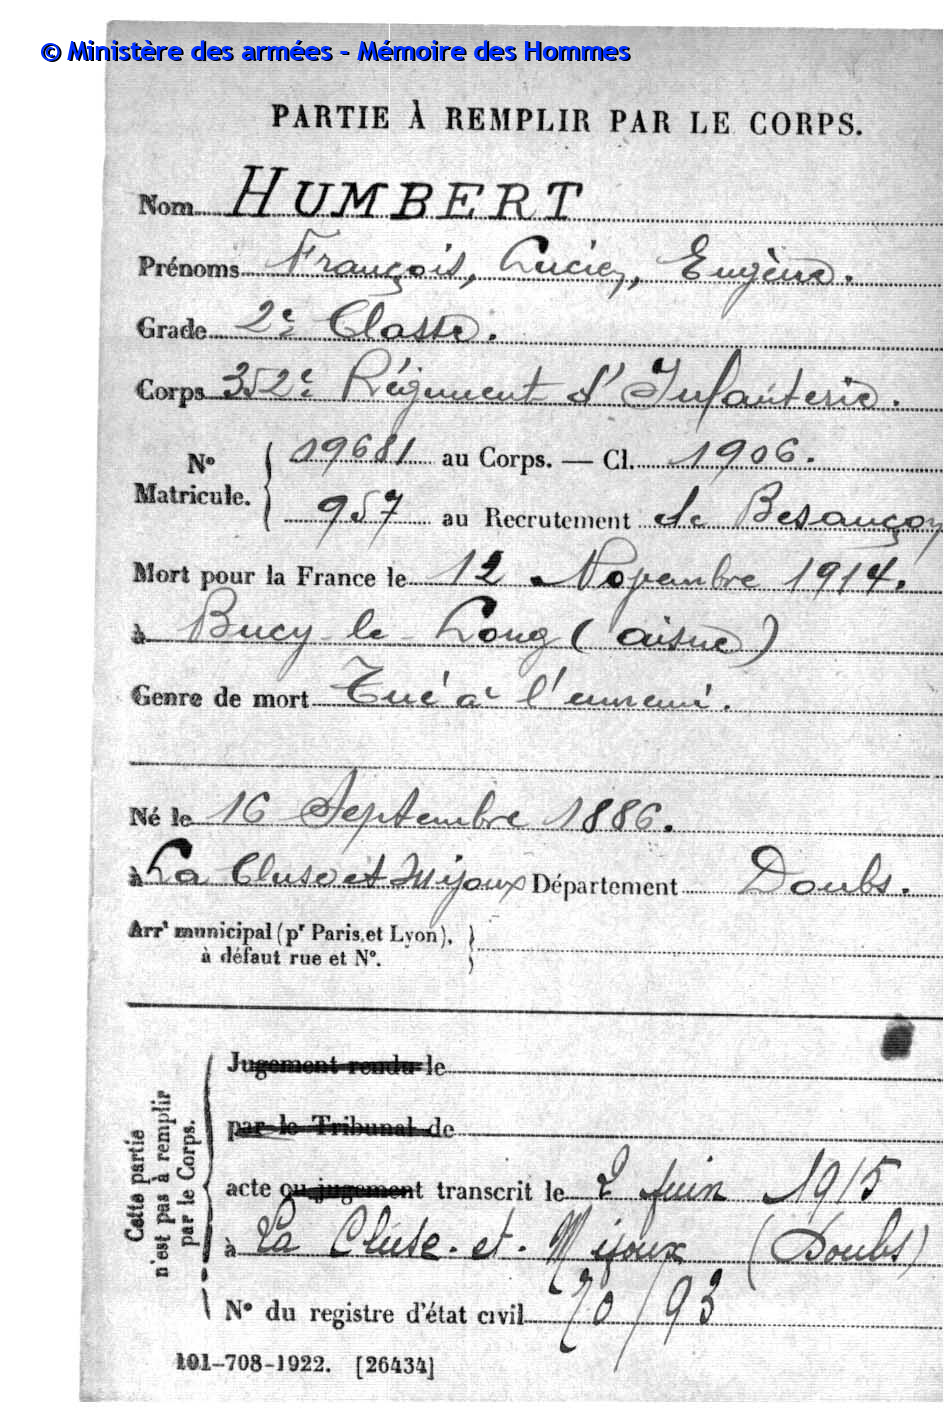 © Ministère des armées - Mémoire des Hommes
PARTIE À REMPLIR PAR LE CORPS.
Nom HUMBERT
Prénoms François, Lucien, Eugène.
Grade 2e Classe.
Corps 352e Régiment d'Infanterie.
No Matricule. { 19681 au Corps. — Cl. 1906.
957 au Recrutement de Besançon
Mort pour la France le 12 Novembre 1914.
à Bucy-le-Long (aisne)
Genre de mort Tué à l'ennemi.
Né le 16 Septembre 1886.
à La Cluse et Mijoux Département Doubs.
Arrt municipal (pr Paris et Lyon), }
à défaut rue et No.
Cette partie n'est pas à remplir par le Corps.
Jugement rendu le
par le Tribunal de
acte ou jugement transcrit le 2 Juin 1915
à La Cluse-et-Mijoux (Doubs)
No du registre d'état civil 70/93
101-708-1922. [26434]